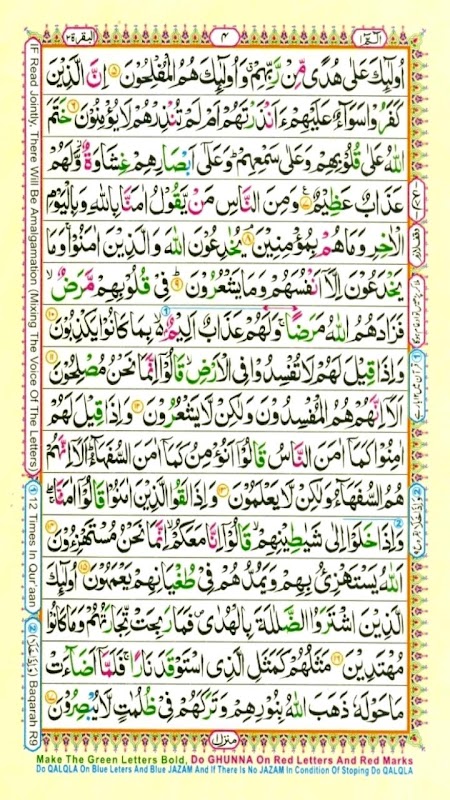 البقرة ٢
٤
الٓمّٓ ١
اُولٰٓئِكَ عَلٰى هُدًى مِّنْ رَّبِّهِمْ ۙ وَاُولٰٓئِكَ هُمُ الْمُفْلِحُوْنَ ۝٥ اِنَّ الَّذِيْنَ
كَفَرُوْا سَوَآءٌ عَلَيْهِمْ ءَاَنْذَرْتَهُمْ اَمْ لَمْ تُنْذِرْهُمْ لَا يُؤْمِنُوْنَ ۝٦ خَتَمَ
اللّٰهُ عَلٰى قُلُوْبِهِمْ وَعَلٰى سَمْعِهِمْ ؕ وَعَلٰٓى اَبْصَارِهِمْ غِشَاوَةٌ ؗ وَّلَهُمْ
عَذَابٌ عَظِيْمٌ ۝٧ وَمِنَ النَّاسِ مَنْ يَّقُوْلُ اٰمَنَّا بِاللّٰهِ وَبِالْيَوْمِ
الْاٰخِرِ وَمَا هُمْ بِمُؤْمِنِيْنَ ۝٨ يُخٰدِعُوْنَ اللّٰهَ وَالَّذِيْنَ اٰمَنُوْا ۚ وَمَا
يَخْدَعُوْنَ اِلَّآ اَنْفُسَهُمْ وَمَا يَشْعُرُوْنَ ۝٩ فِيْ قُلُوْبِهِمْ مَّرَضٌ ۙ
فَزَادَهُمُ اللّٰهُ مَرَضًا ۚ وَلَهُمْ عَذَابٌ اَلِيْمٌ ۢ ۙ بِمَا كَانُوْا يَكْذِبُوْنَ ۝١٠
وَاِذَا قِيْلَ لَهُمْ لَا تُفْسِدُوْا فِي الْاَرْضِ ۙ قَالُوْٓا اِنَّمَا نَحْنُ مُصْلِحُوْنَ ۝١١
اَلَآ اِنَّهُمْ هُمُ الْمُفْسِدُوْنَ وَلٰكِنْ لَّا يَشْعُرُوْنَ ۝١٢ وَاِذَا قِيْلَ لَهُمْ
اٰمِنُوْا كَمَآ اٰمَنَ النَّاسُ قَالُوْٓا اَنُؤْمِنُ كَمَآ اٰمَنَ السُّفَهَآءُ ؕ اَلَآ اِنَّهُمْ
هُمُ السُّفَهَآءُ وَلٰكِنْ لَّا يَعْلَمُوْنَ ۝١٣ وَاِذَا لَقُوا الَّذِيْنَ اٰمَنُوْا قَالُوْٓا اٰمَنَّا ۖ
وَاِذَا خَلَوْا اِلٰى شَيٰطِيْنِهِمْ ۙ قَالُوْٓا اِنَّا مَعَكُمْ ۙ اِنَّمَا نَحْنُ مُسْتَهْزِءُوْنَ ۝١٤
اَللّٰهُ يَسْتَهْزِئُ بِهِمْ وَيَمُدُّهُمْ فِيْ طُغْيَانِهِمْ يَعْمَهُوْنَ ۝١٥ اُولٰٓئِكَ
الَّذِيْنَ اشْتَرَوُا الضَّلٰلَةَ بِالْهُدٰى ۪ فَمَا رَبِحَتْ تِّجَارَتُهُمْ وَمَا كَانُوْا
مُهْتَدِيْنَ ۝١٦ مَثَلُهُمْ كَمَثَلِ الَّذِي اسْتَوْقَدَ نَارًا ۚ فَلَمَّآ اَضَآءَتْ
مَا حَوْلَهٗ ذَهَبَ اللّٰهُ بِنُوْرِهِمْ وَتَرَكَهُمْ فِيْ ظُلُمٰتٍ لَّا يُبْصِرُوْنَ ۝١٧
منزل ١
IF Read Jointly, There Will Be Amalgamation (Mixing The Voice Of The Letters)
① 12 Times In Qur'aan
Baqarah R9
Make The Green Letters Bold, Do GHUNNA On Red Letters And Red Marks
Do QALQLA On Blue Leters And Blue JAZAM And If There Is No JAZAM In Condition Of Stoping Do QALQLA